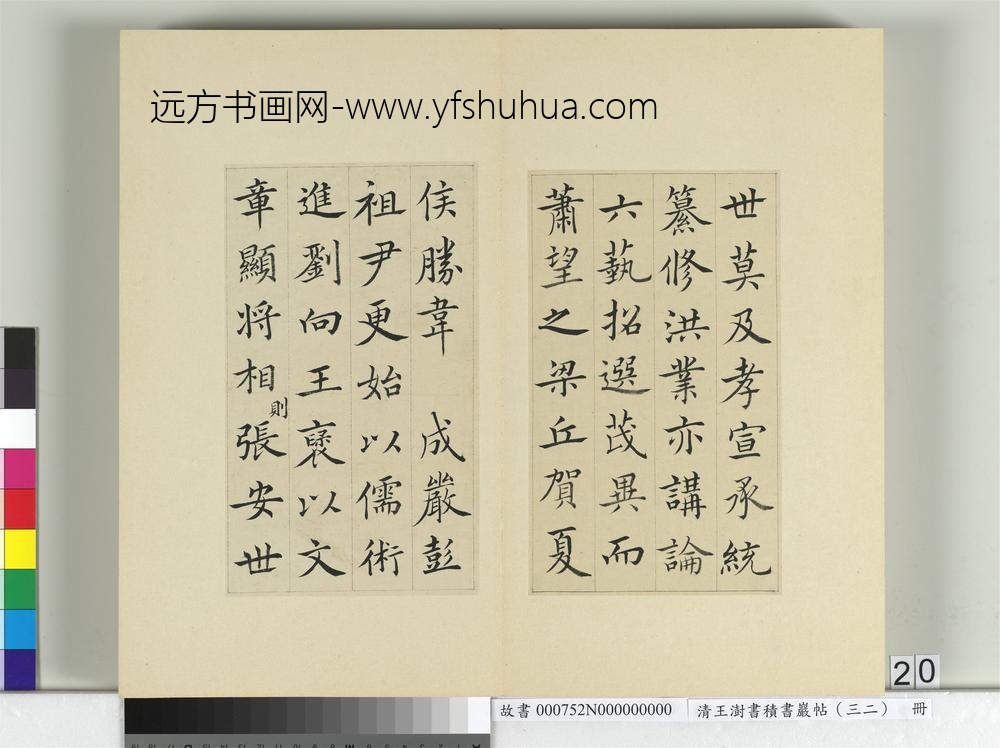 远方书画网-www.yfshuhua.com
世莫及孝宣承統
纂修洪業亦講論
六藝招選茂異而
蕭望之梁丘賀夏
侯勝韋 成嚴彭
祖尹更始以儒術
進劉向王襃以文
章顯将相則張安世
20
故書 000752N000000000
清王澍書積書巖帖（三二） 冊